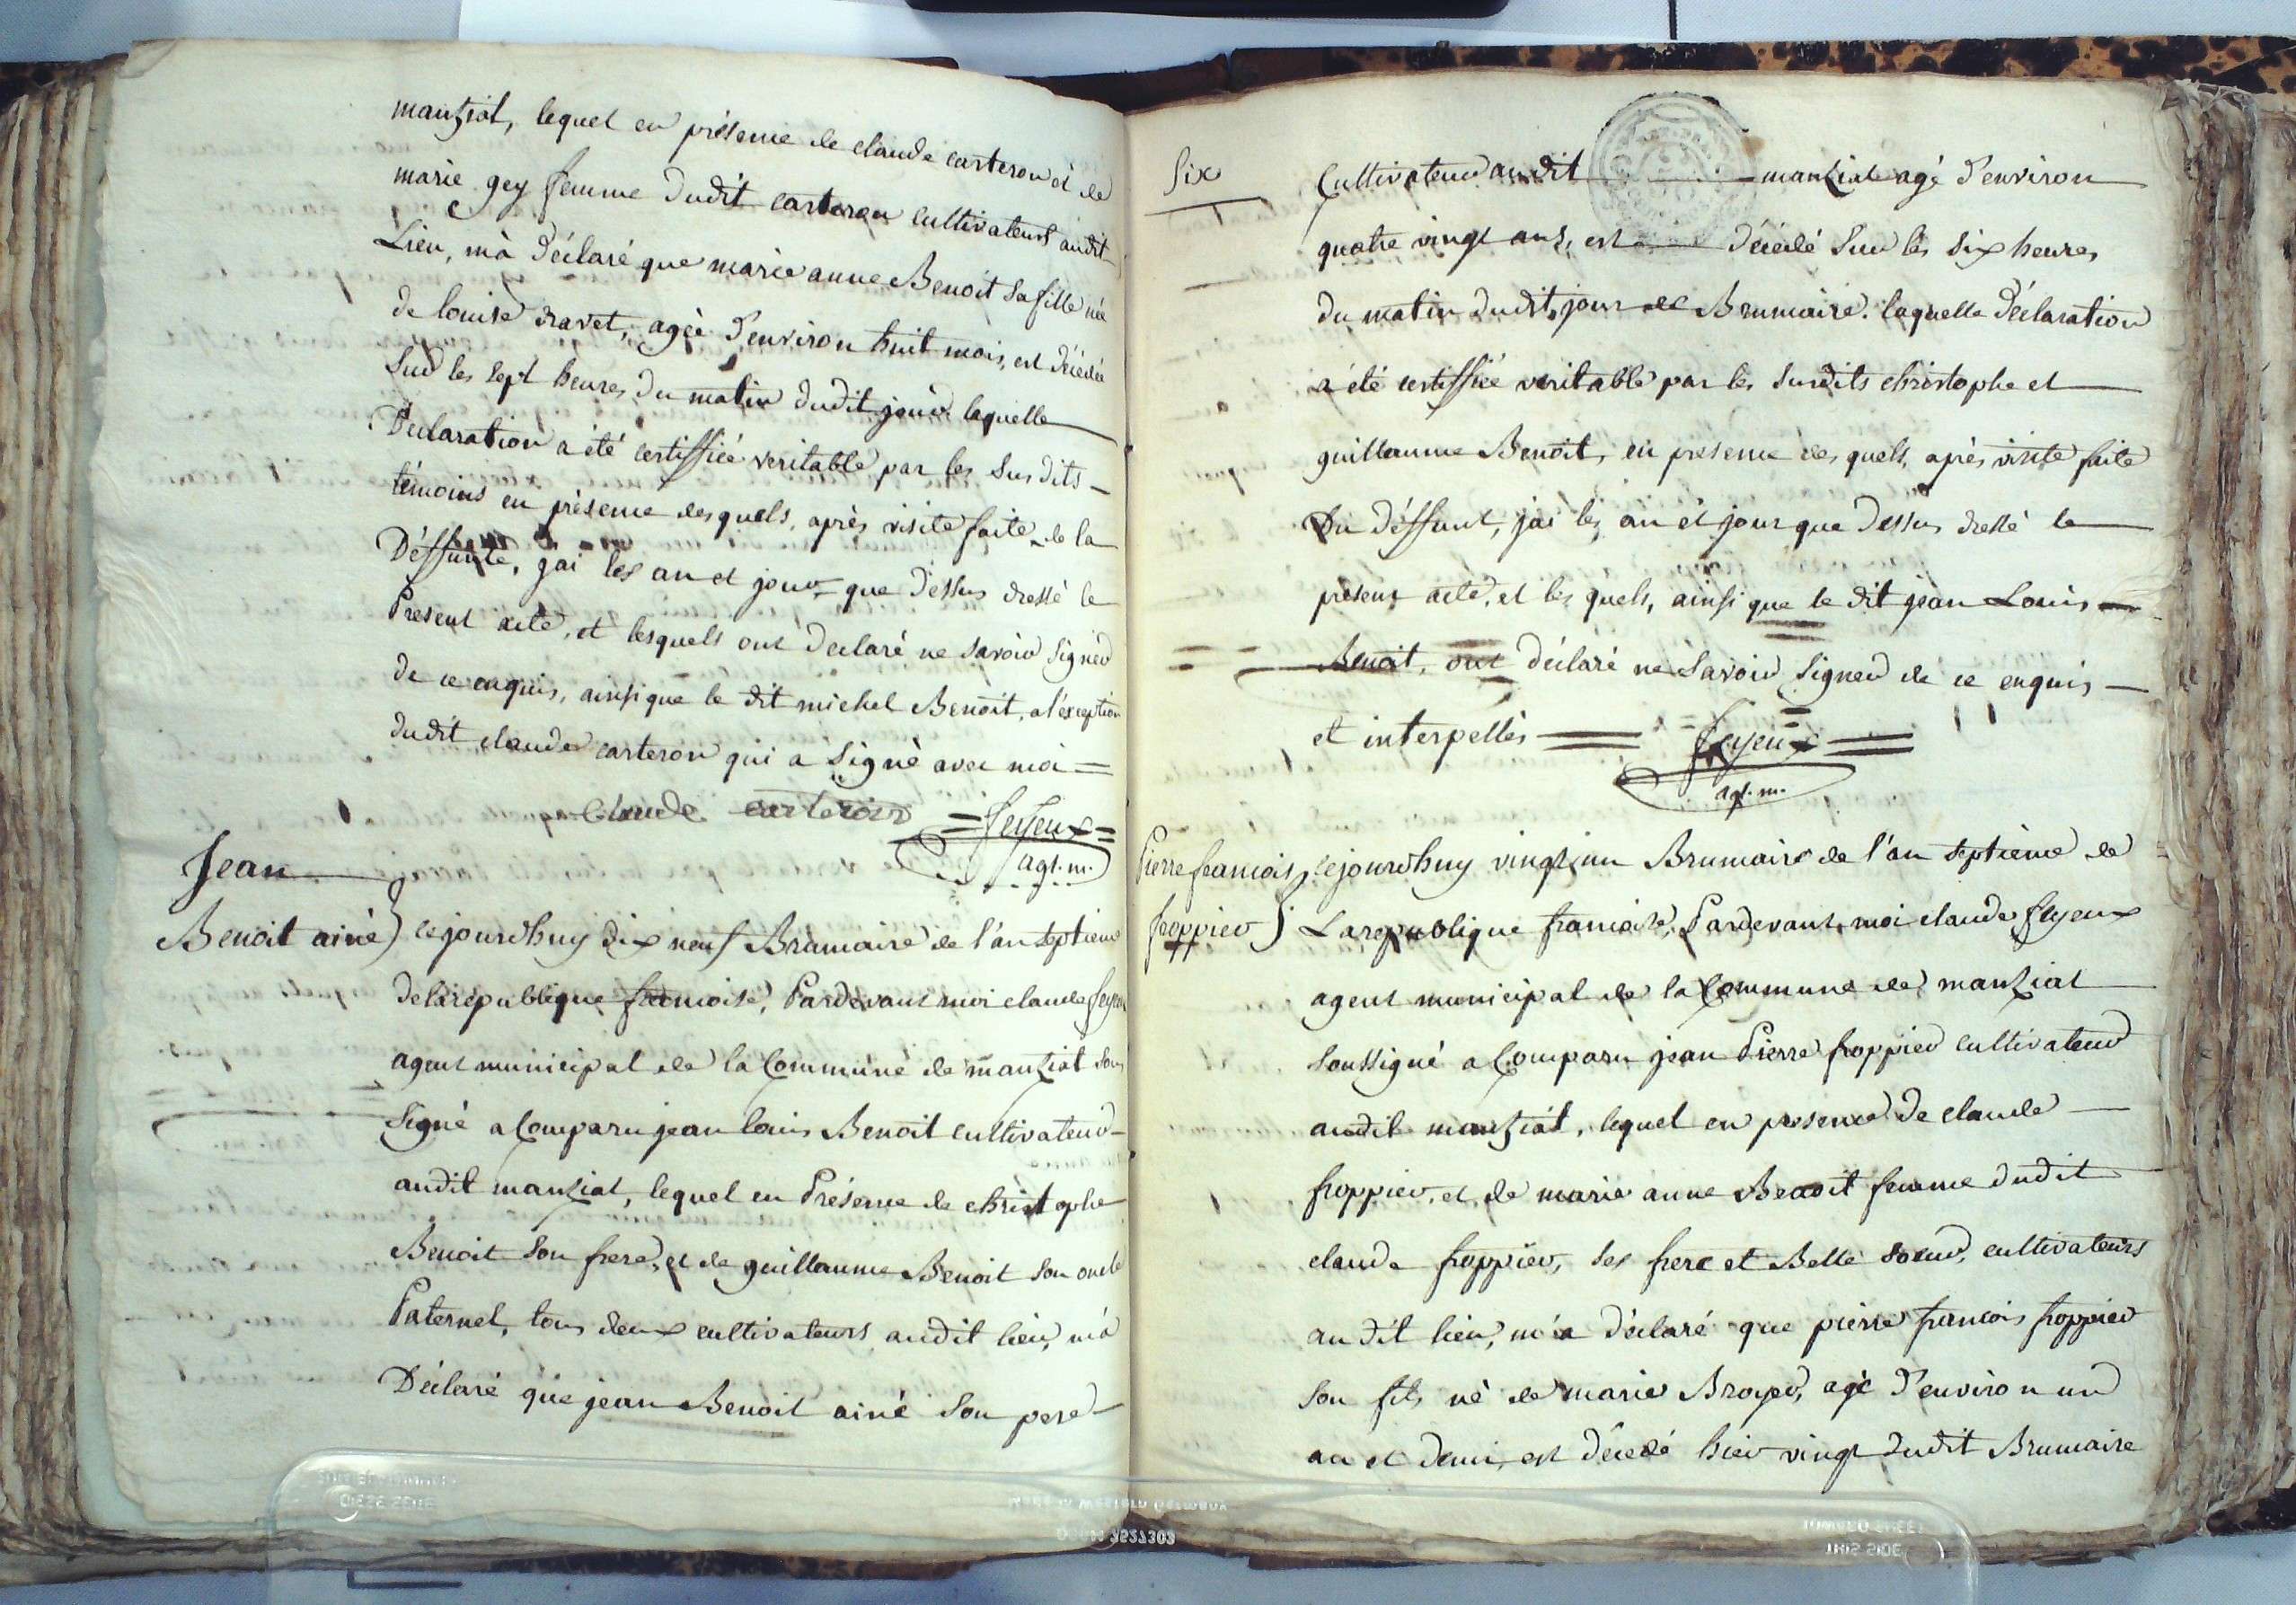 manziat, lequel en présence de claude carteron et de
marie gey femme dudit carteron cultivateurs audit
Lieu, m'à déclaré que marie anne Benoit sa fille née
de louise dravet, agée d'environ huit mois, est décédée
Sur les sept heures du matin dudit jour laquelle
Declaration a été certiffiée veritable par les Sus dits
témoins en présence desquels, après visite faite de la
Déffunte, jai les an et jour que dessus dressé le
Present acte, et lesquels ont declaré ne savoir signer
de ce enquis, ainsi que le dit michel Benoit, a l'exception
dudit claude carteron qui a Signé avec moi =
Claude carteron = feyeux =
agt. m.
Jean
Benoit ainé } cejourdhuy dix neuf Brumaire de l'an septieme
de la republique francoise, Pardevant moi claude feyeux
agent municipal de la Commune de manziat sous
Signé a Comparu jean louis Benoit cultivateur
audit manziat, lequel en Présence de christophe
Benoit Son frere, et de guillaume Benoit son oncle
Paternel, tous deux cultivateurs audit lieu, m'a
Déclaré que jean Benoit ainé Son pere
Six
Cultivateur audit manziat agé d'environ
quatre vingt ans, est décédé Sur les six heures
du matin dudit jour de Brumaire. laquelle déclaration
a été certiffiée veritable par les Susdits christophe et
guillaume Benoit, en presence des quels, après visite faite
Du déffunt, j'ai les an et jour que dessus dressé le
présent acte, et les quels, ainsi que le dit jean Louis
Benoit, ont déclaré ne Savoir signer de ce enquis
et interpellés = feyeux =
agt. m.
Pierre francois } cejourdhuy vingt un Brumaire de l'an septième de
froppier } La republique francoise, Pardevant moi claude feyeux
agent municipal de la Commune de manziat
soussigné a Comparu jean Pierre froppier cultivateur
audit manziat, lequel en presence de claude
froppier, et de marie anne Benoit femme dudit
claude froppier, ses frere et Belle soeur, cultivateurs
au dit lieu, m'a déclaré que pierre francois froppier
son fils né de marie Broyer, agé d'environ un
an et demi, est décédé hier vingt dudit Brumaire